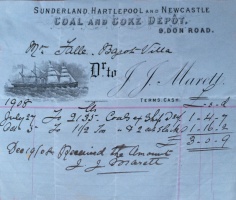 SUNDERLAND, HARTLEPOOL AND NEWCASTLE
COAL AND COKE DEPÔT.
9, DON ROAD.
Mr Falle Bagot Villa
Dr to J. J. Marett
TERMS CASH
1908
July 27 To 2135 Coal 1-4-7
To 1 1/2 To 1-16-2
3-0-9
Dec 19/08 Received the Amount
J J Marett